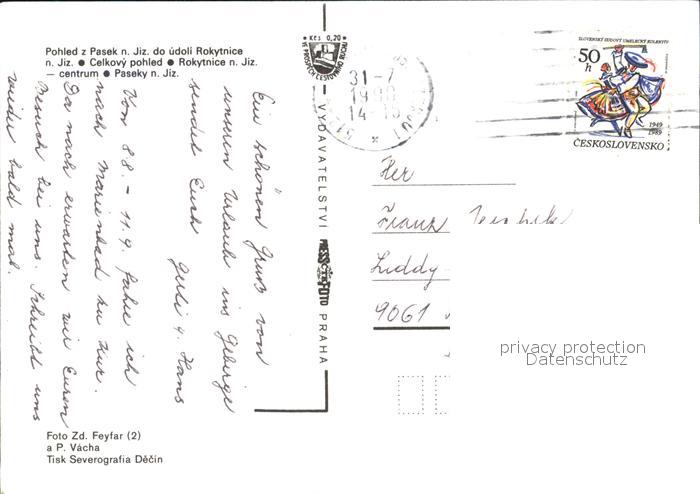 Pohled z Pasek n. Jiz. do údolí Rokytnice
n. Jiz. ● Celkový pohled ● Rokytnice n. Jiz.
— centrum ● Paseky n. Jiz.
Ein schönen Gruß von
unserm Urlaub ins Gebirge
sendet Euch
Hans
Von 8.8. – 11.9. fahre ich
nach Marienbad zu Kur.
Da nach erwarten wir Euren
Besuch bei uns. Schreibt uns
wieder bald mal.
Foto Zd. Feyfar (2)
a P. Vácha
Tisk Severografia Děčín
Kčs 0,20
VE PROSPĚCH CESTOVNÍHO RUCHU
VYDAVATELSTVÍ
PRESSFOTO
PRAHA
31-7
14-15
SLOVENSKÝ ĽUDOVÝ UMELECKÝ KOLEKTÍV
50
h
1949
1989
ČESKOSLOVENSKO
Her
Franz
Liddy
9061
privacy protection
Datenschutz